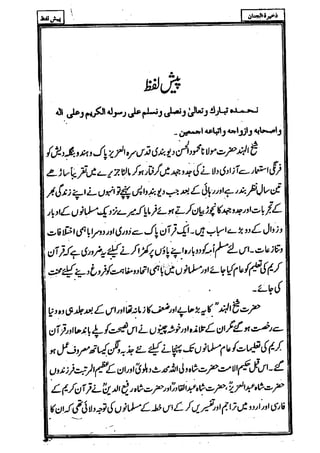 ذخيرة الجنان
پیش لفظ
پیش لفظ
نحمده تبارك وتعالىٰ ونصلى ونسلم على رسوله الكريم وعلى آله
واصحابه وازواجه واتباعه اجمعين۔
شیخ الہند حضرت مولانا محمود الحسن دیوبندی قدس سرہ العزیز پاک و ہند و بنگلہ دیش کو
فرنگی استعمار سے آزادی دلانے کی جدوجہد میں گرفتار ہو کر مالٹا جزیرے میں تقریباً ساڑھے
تین سال نظر بند رہے اور رہائی کے بعد جب دیوبند واپس پہنچے تو انہوں نے اپنے زندگی بھر
کے تجربات اور جدوجہد کا نچوڑ بیان کرتے ہوئے فرمایا کہ میرے نزدیک مسلمانوں کے ادبار
و زوال کے دو بڑے اسباب ہیں۔ ایک قرآن پاک سے دوری اور دوسرا باہمی اختلافات
وتنازعات۔ اس لئے مسلم امہ کو دوبارہ اپنے پاؤں پر کھڑا کرنے کیلئے یہ ضروری ہے کہ قرآن
کریم کی تعلیم کو عام کیا جائے اور مسلمانوں میں باہمی اتحاد و مفاہمت کو فروغ دینے کیلئے محنت
کی جائے۔
حضرت شیخ الہندؒ کا یہ بڑھاپے اور ضعف کا زمانہ تھا اور اس کے بعد جلد ہی وہ دنیا
سے رخصت ہو گئے مگر ان کے تلامذہ اور خوشہ چینوں نے اس نصیحت کو پلے باندھا اور قرآن
کریم کی تعلیمات کو عام مسلمانوں تک پہنچانے کیلئے نئے جذبہ ولگن کیساتھ مصروف عمل ہو
گئے۔ اس قبل حکیم الامت حضرت شاہ ولی اللہ محدث دہلویؒ اور ان کے عظیم المرتبت فرزندوں
حضرت شاہ عبدالعزیزؒ، حضرت شاہ عبدالقادرؒ اور حضرت شاہ رفیع الدینؒ نے قرآن کریم کے
فارسی اور اردو میں تراجم اور تفسیریں کر کے اس خطہ کے مسلمانوں کی توجہ دلائی تھی کہ ان کا